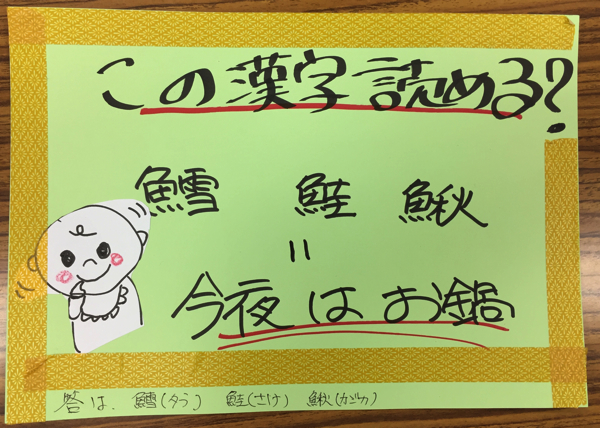 この漢字読める?
鱈 鮭 鰍
=
今夜はお鍋
答は、鱈(タラ) 鮭(さけ) 鰍(カジカ)